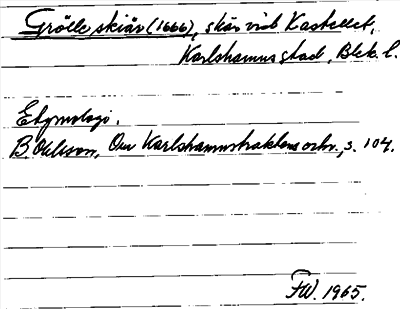 Grölle skiär (1666), skär vid Kastellet,
Karlshamns stad, Blek. l.
Etymologi.
B. Ohlsson, Om Karlshamnstraktens ortn., s. 104.
FW. 1965.